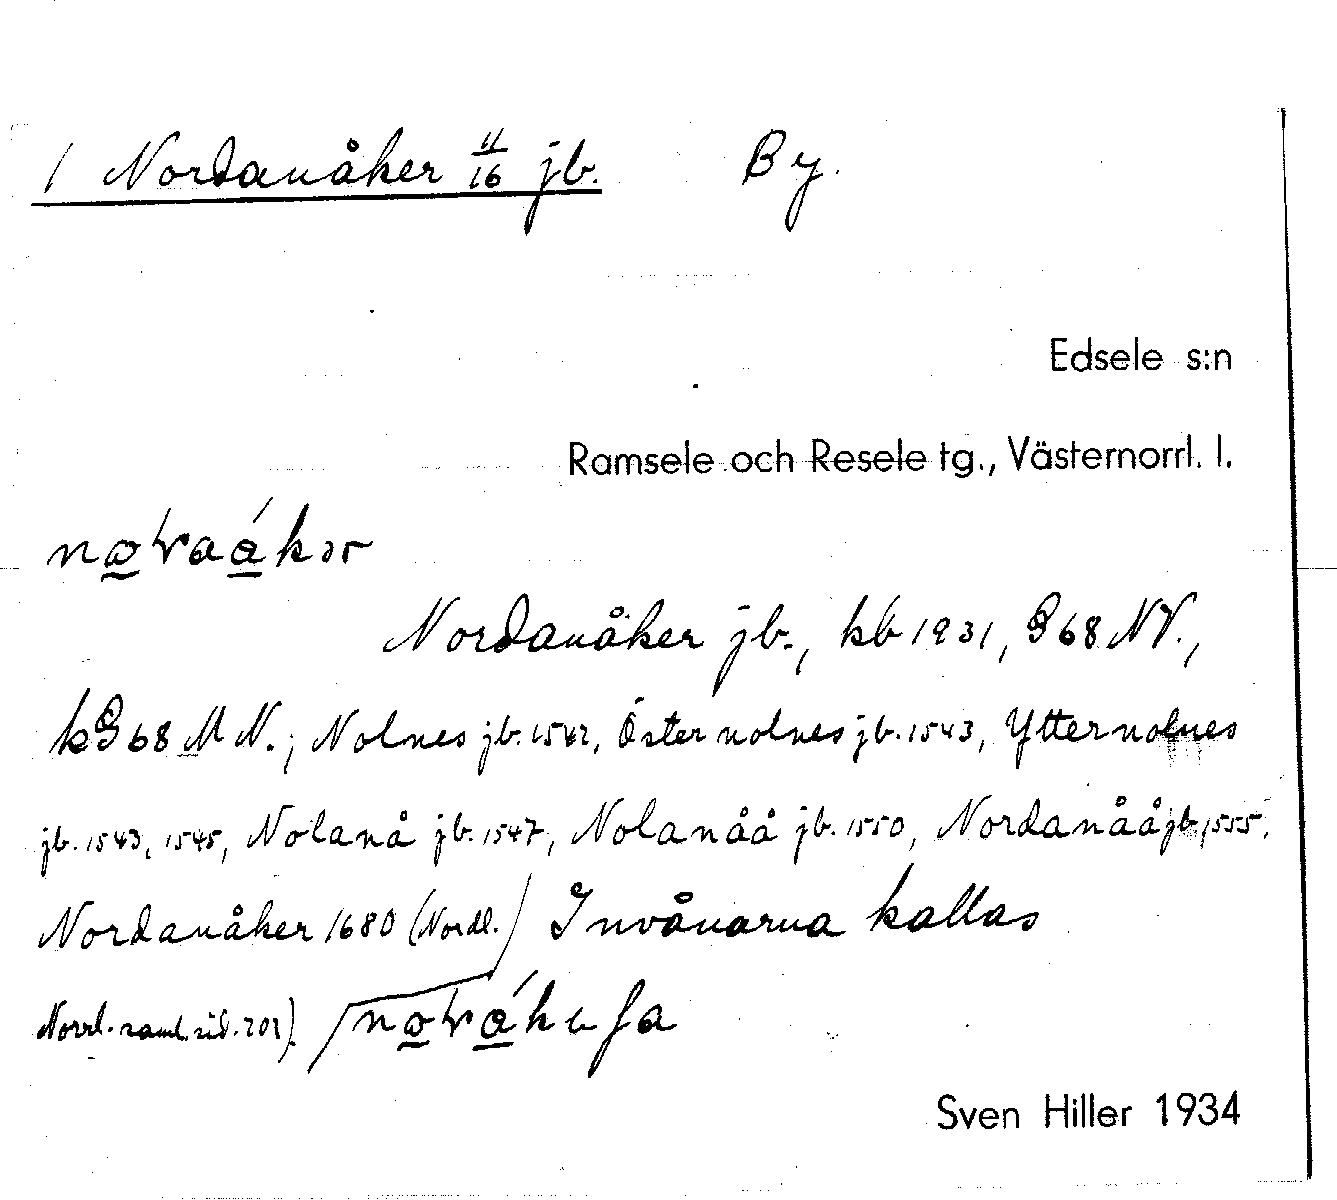 1 Nordanåker 11/16 jb. By.
Edsele s:n
Ramsele och Resele tg., Västernorrl. l.
Nordanåker jb., kb 1931, § 68 NV.,
k § 68 M N.; Nolnes jb. 1542, Öster nolnes jb. 1543, Ytter nolnes
jb. 1543, 1545, Nolanå jb. 1547, Nolanåå jb. 1550, Nordanåå jb. 1555,
Nordanåker 1680 (Nordl. Invånarna kallas
Norrl. saml. sid. 202).
Sven Hiller 1934